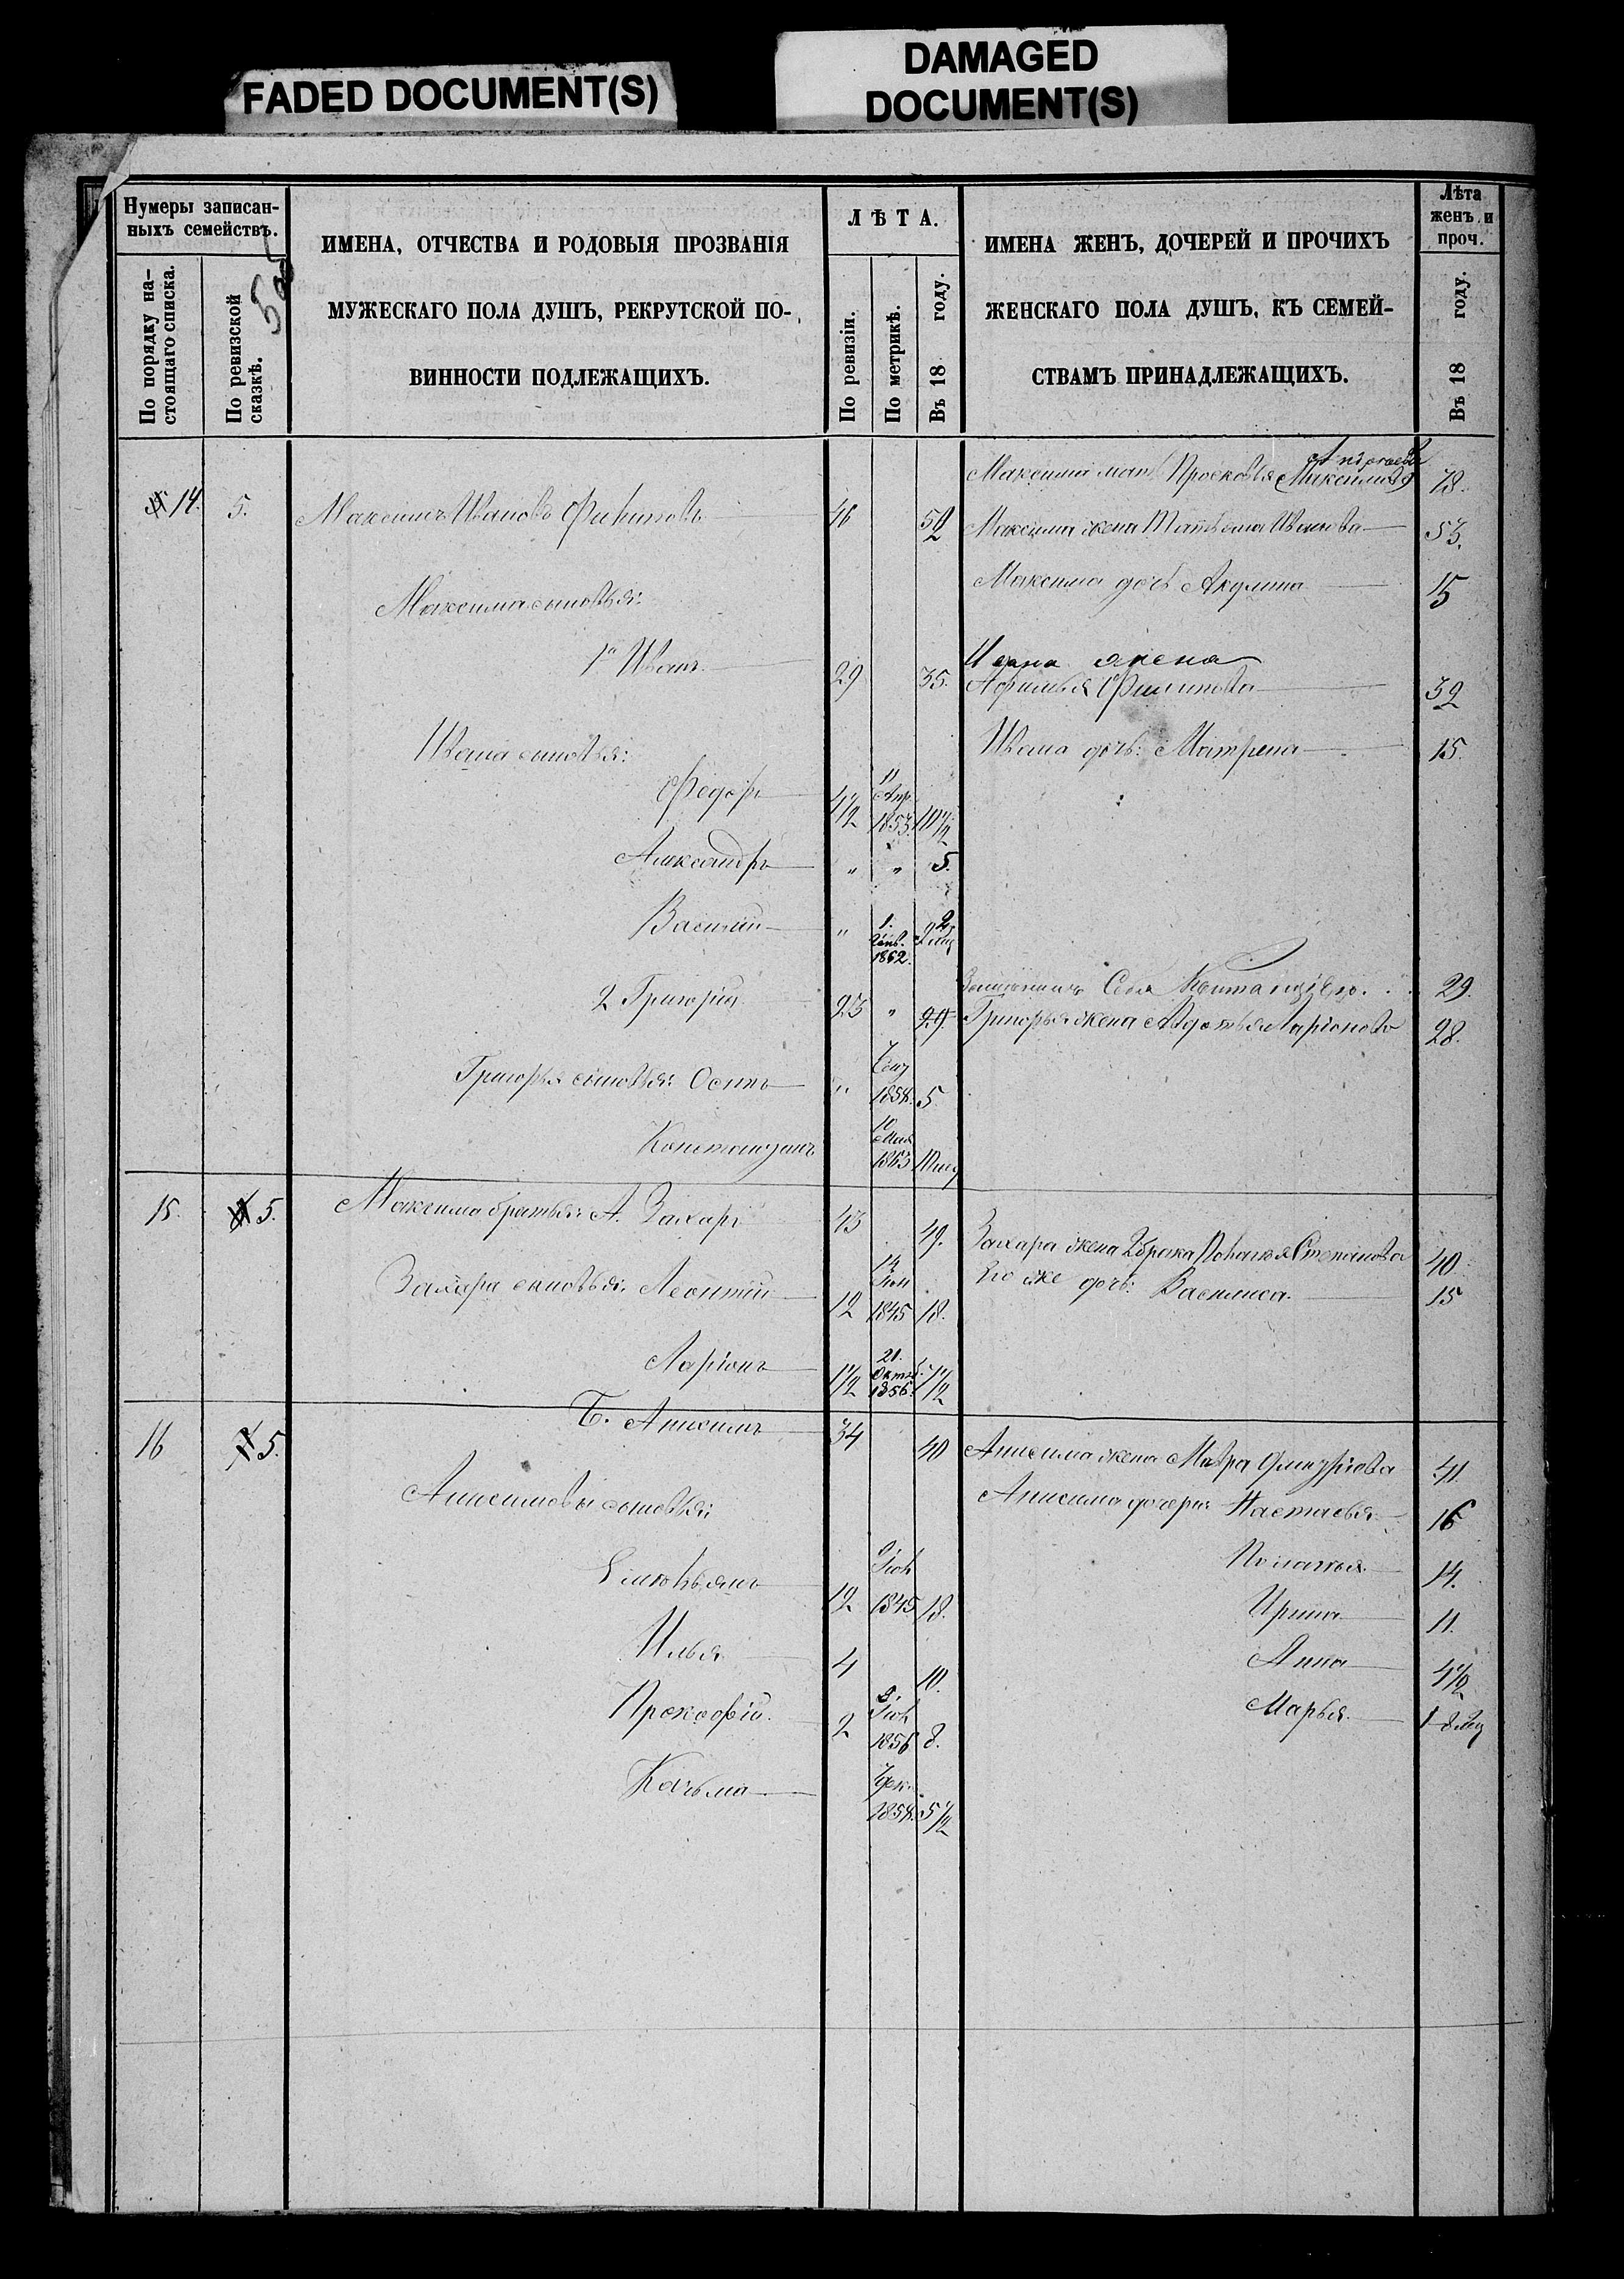 FADED DOCUMENT(S)
DAMAGED
DOCUMENT(S)
Нумеры записан-
ныхъ семействъ.
По порядку на-
стоящаго списка.
По ревизской
сказкѣ.
ИМЕНА, ОТЧЕСТВА И РОДОВЫЯ ПРОЗВАНІЯ
МУЖЕСКАГО ПОЛА ДУШЪ, РЕКРУТСКОЙ ПО-
ВИННОСТИ ПОДЛЕЖАЩИХЪ.
ЛѢТА.
По ревизіи.
По метрикѣ.
Въ 18 году.
ИМЕНА ЖЕНЪ, ДОЧЕРЕЙ И ПРОЧИХЪ
ЖЕНСКАГО ПОЛА ДУШЪ, КЪ СЕМЕЙ-
СТВАМЪ ПРИНАДЛЕЖАЩИХЪ.
Лѣта
женъ и
проч.
Въ 18 году.
Максима мать Просковья 78.
14. 5. Максимъ Ивановъ Филиповъ 46 52 Максима жена Татьяна Иванова 53.
Максима дочь Акулина 15
Максима сыновья:
Ивана жена
1й Иванъ 29 35. Афимья Филипова 32
Ивана сыновья: Ивана дочь: Матрена 15.
Федоръ 4½ 11 Апр. 1853. 10½
Александръ " " 5.
Василий " 1. Янв. 1862. 2
29.
2 Григорий 23 " 29 Григорья жена Авдотья Ларіонова 28.
Григорья сыновья: Осипъ " 1858. 5
Константинъ 10 Мая 1863
15. 5. Максима братья: А. Захаръ 43 49. Захара жена 2 брака Степанова 40
Его же дочь: Василиса. 15
Захара сыновья: Леонтий 12 14 1845 18.
Ларіонъ 1½ 21. Октяб. 1856. 7½
16 5. Б. Анисимъ 34 40 Анисима жена Мавра 41.
Анисимовы сыновья: Анисима дочери: Настасья 16
Емельянъ 12 1845 18. Полагья 14.
Ирина 11.
Илья 4 10. Анна 4½
Прокофій 2 8. 1856 8. Марья
Козьма 7 дек. 1858. 5½